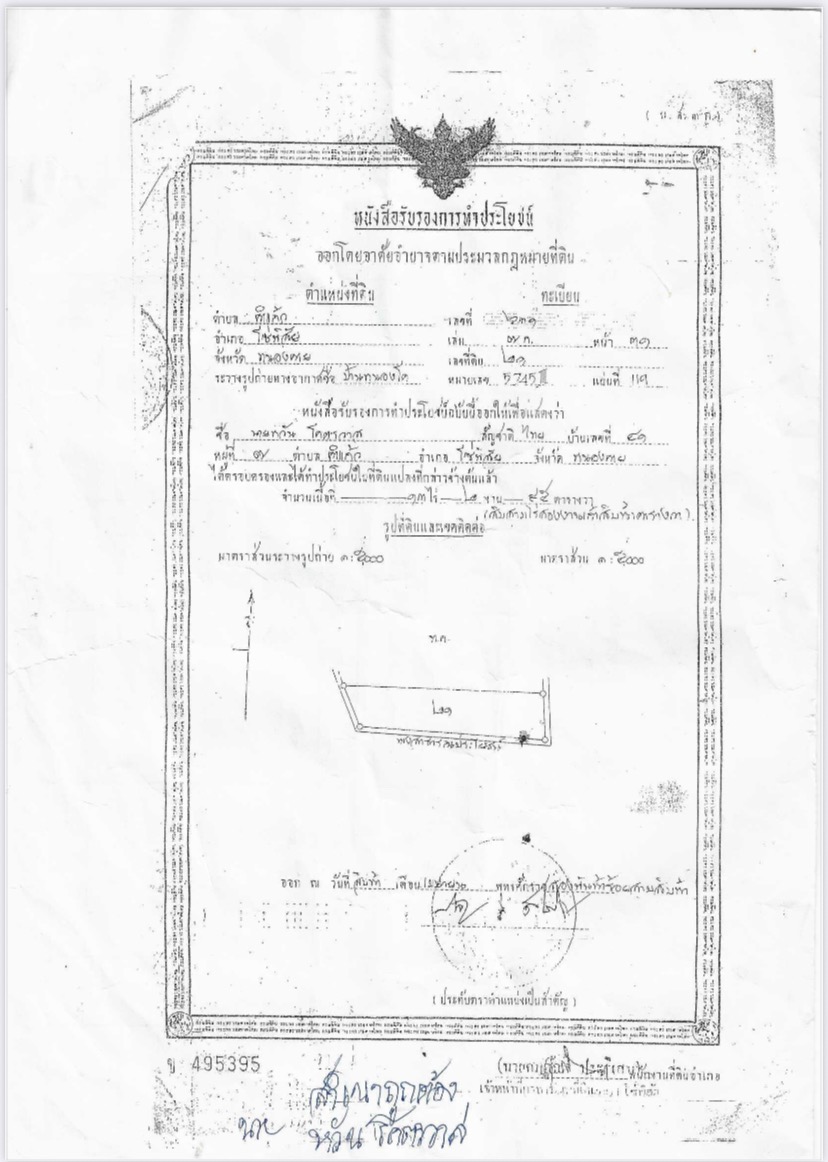 (น.ส. ๓ ก.)
หนังสือรับรองการทำประโยชน์
ออกโดยอาศัยอำนาจตามประมวลกฎหมายที่ดิน
ตำแหน่งที่ดิน ทะเบียน
ตำบล เลขที่ ๒๓๑
อำเภอ โซ่พิสัย เล่ม ๗ ก. หน้า ๓๑
จังหวัด หนองคาย เลขที่ดิน ๒๑
ระวางรูปถ่ายทางอากาศชื่อ หมายเลข 5745 III แผ่นที่ 119
หนังสือรับรองการทำประโยชน์ฉบับนี้ออกให้เพื่อแสดงว่า
ชื่อ นายหวัน โคตรวาส สัญชาติ ไทย บ้านเลขที่ ๔๑
หมู่ที่ ๗ ตำบล อำเภอ โซ่พิสัย จังหวัด หนองคาย
ได้ครอบครองและได้ทำประโยชน์ในที่ดินแปลงที่กล่าวข้างต้นแล้ว
จำนวนเนื้อที่ ๑๓ ไร่ ๒ งาน ๙๕ ตารางวา
(สิบสามไร่สองงานเก้าสิบห้าตารางวา)
รูปที่ดินและเขตติดต่อ
มาตราส่วนระวางรูปถ่าย ๑:๕,๐๐๐ มาตราส่วน ๑:๕,๐๐๐
น.
ท.ค.
๒๑
ทางสาธารณประโยชน์
ออก ณ วันที่ สิบห้า เดือน เมษายน พุทธศักราช สองพันห้าร้อยสามสิบห้า
(ประทับตราตำแหน่งเป็นสำคัญ)
ข 495395
เจ้าพนักงานที่ดินอำเภอ
สำเนาถูกต้อง
นาย หวัน โคตรวาส